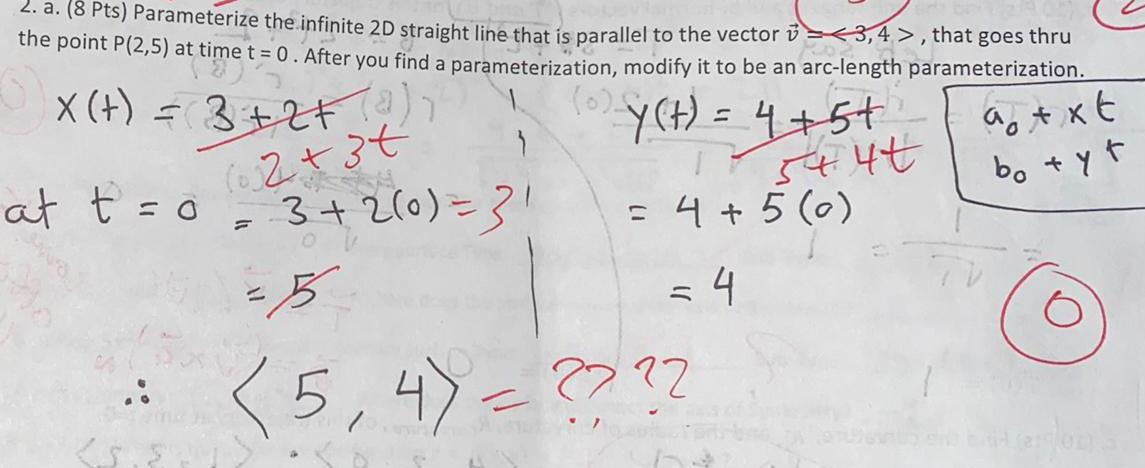 2. a. (8 Pts) Parameterize the infinite 2D straight line that is parallel to the vector v⃗ = < 3, 4 > , that goes thru
the point P(2,5) at time t = 0 . After you find a parameterization, modify it to be an arc-length parameterization.
x(t) = 3 + 2t
y(t) = 4 + 5t
a₀ + xt
2 + 3t
5 + 4t
b₀ + yt
at t = 0 = 3 + 2(0) = 3
= 4 + 5(0)
= 5
= 4
0
∴ ⟨5, 4⟩ = ????